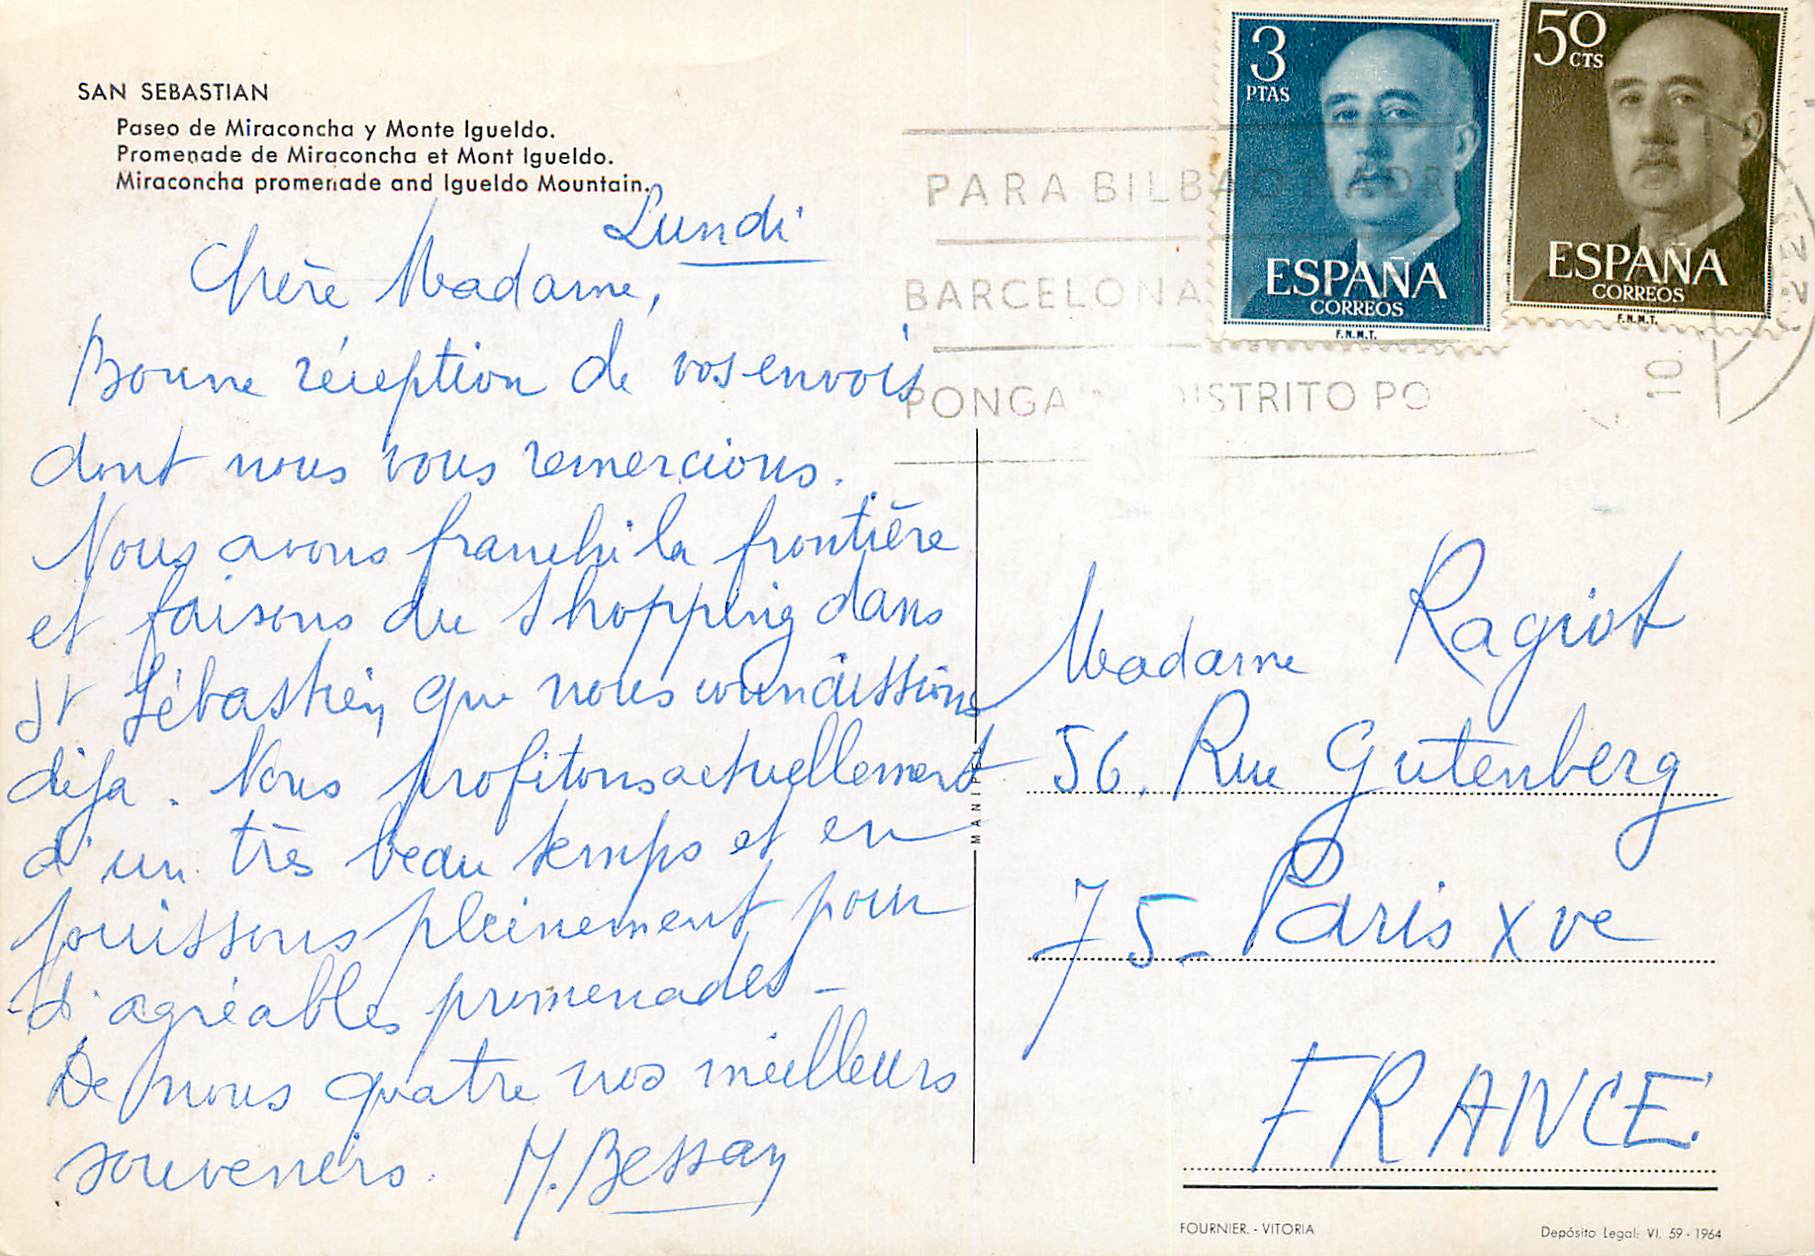 SAN SEBASTIAN
Paseo de Miraconcha y Monte Igueldo.
Promenade de Miraconcha et Mont Igueldo.
Miraconcha promenade and Igueldo Mountain.
Lundi
Chère Madame,
Bonne réception de vos envois
dont nous vous remercions.
Nous avons franchi la frontière
et faisons du shopping dans
St Sébastien que nous connaissions
déja. Nous profitons actuellement
d'un très beau temps et en
jouissons pleinement pour
d'agréables promenades –
De nous quatre nos meilleurs
souvenirs. M. Bessay
3
PTAS
ESPAÑA
CORREOS
F.N.M.T.
50
CTS
ESPAÑA
CORREOS
F.N.M.T.
PARA BILBAO MADR
BARCELONA
PONGA DISTRITO PO
10
MANIPEL
Madame Ragiot
56. Rue Gutenberg
75- Paris XVe
FRANCE
FOURNIER. - VITORIA
Depósito Legal: VI. 59 - 1964